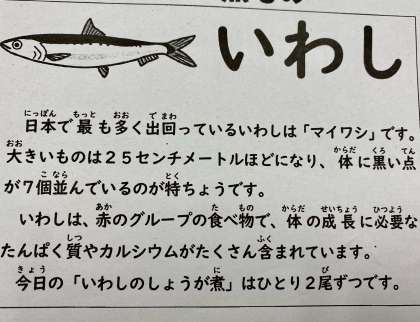 いわし
日本で最も多く出回っているいわしは「マイワシ」です。
大きいものは25センチメートルほどになり、体に黒い点
が7個並んでいるのが特ちょうです。
いわしは、赤のグループの食べ物で、体の成長に必要な
たんぱく質やカルシウムがたくさん含まれています。
今日の「いわしのしょうが煮」はひとり2尾ずつです。